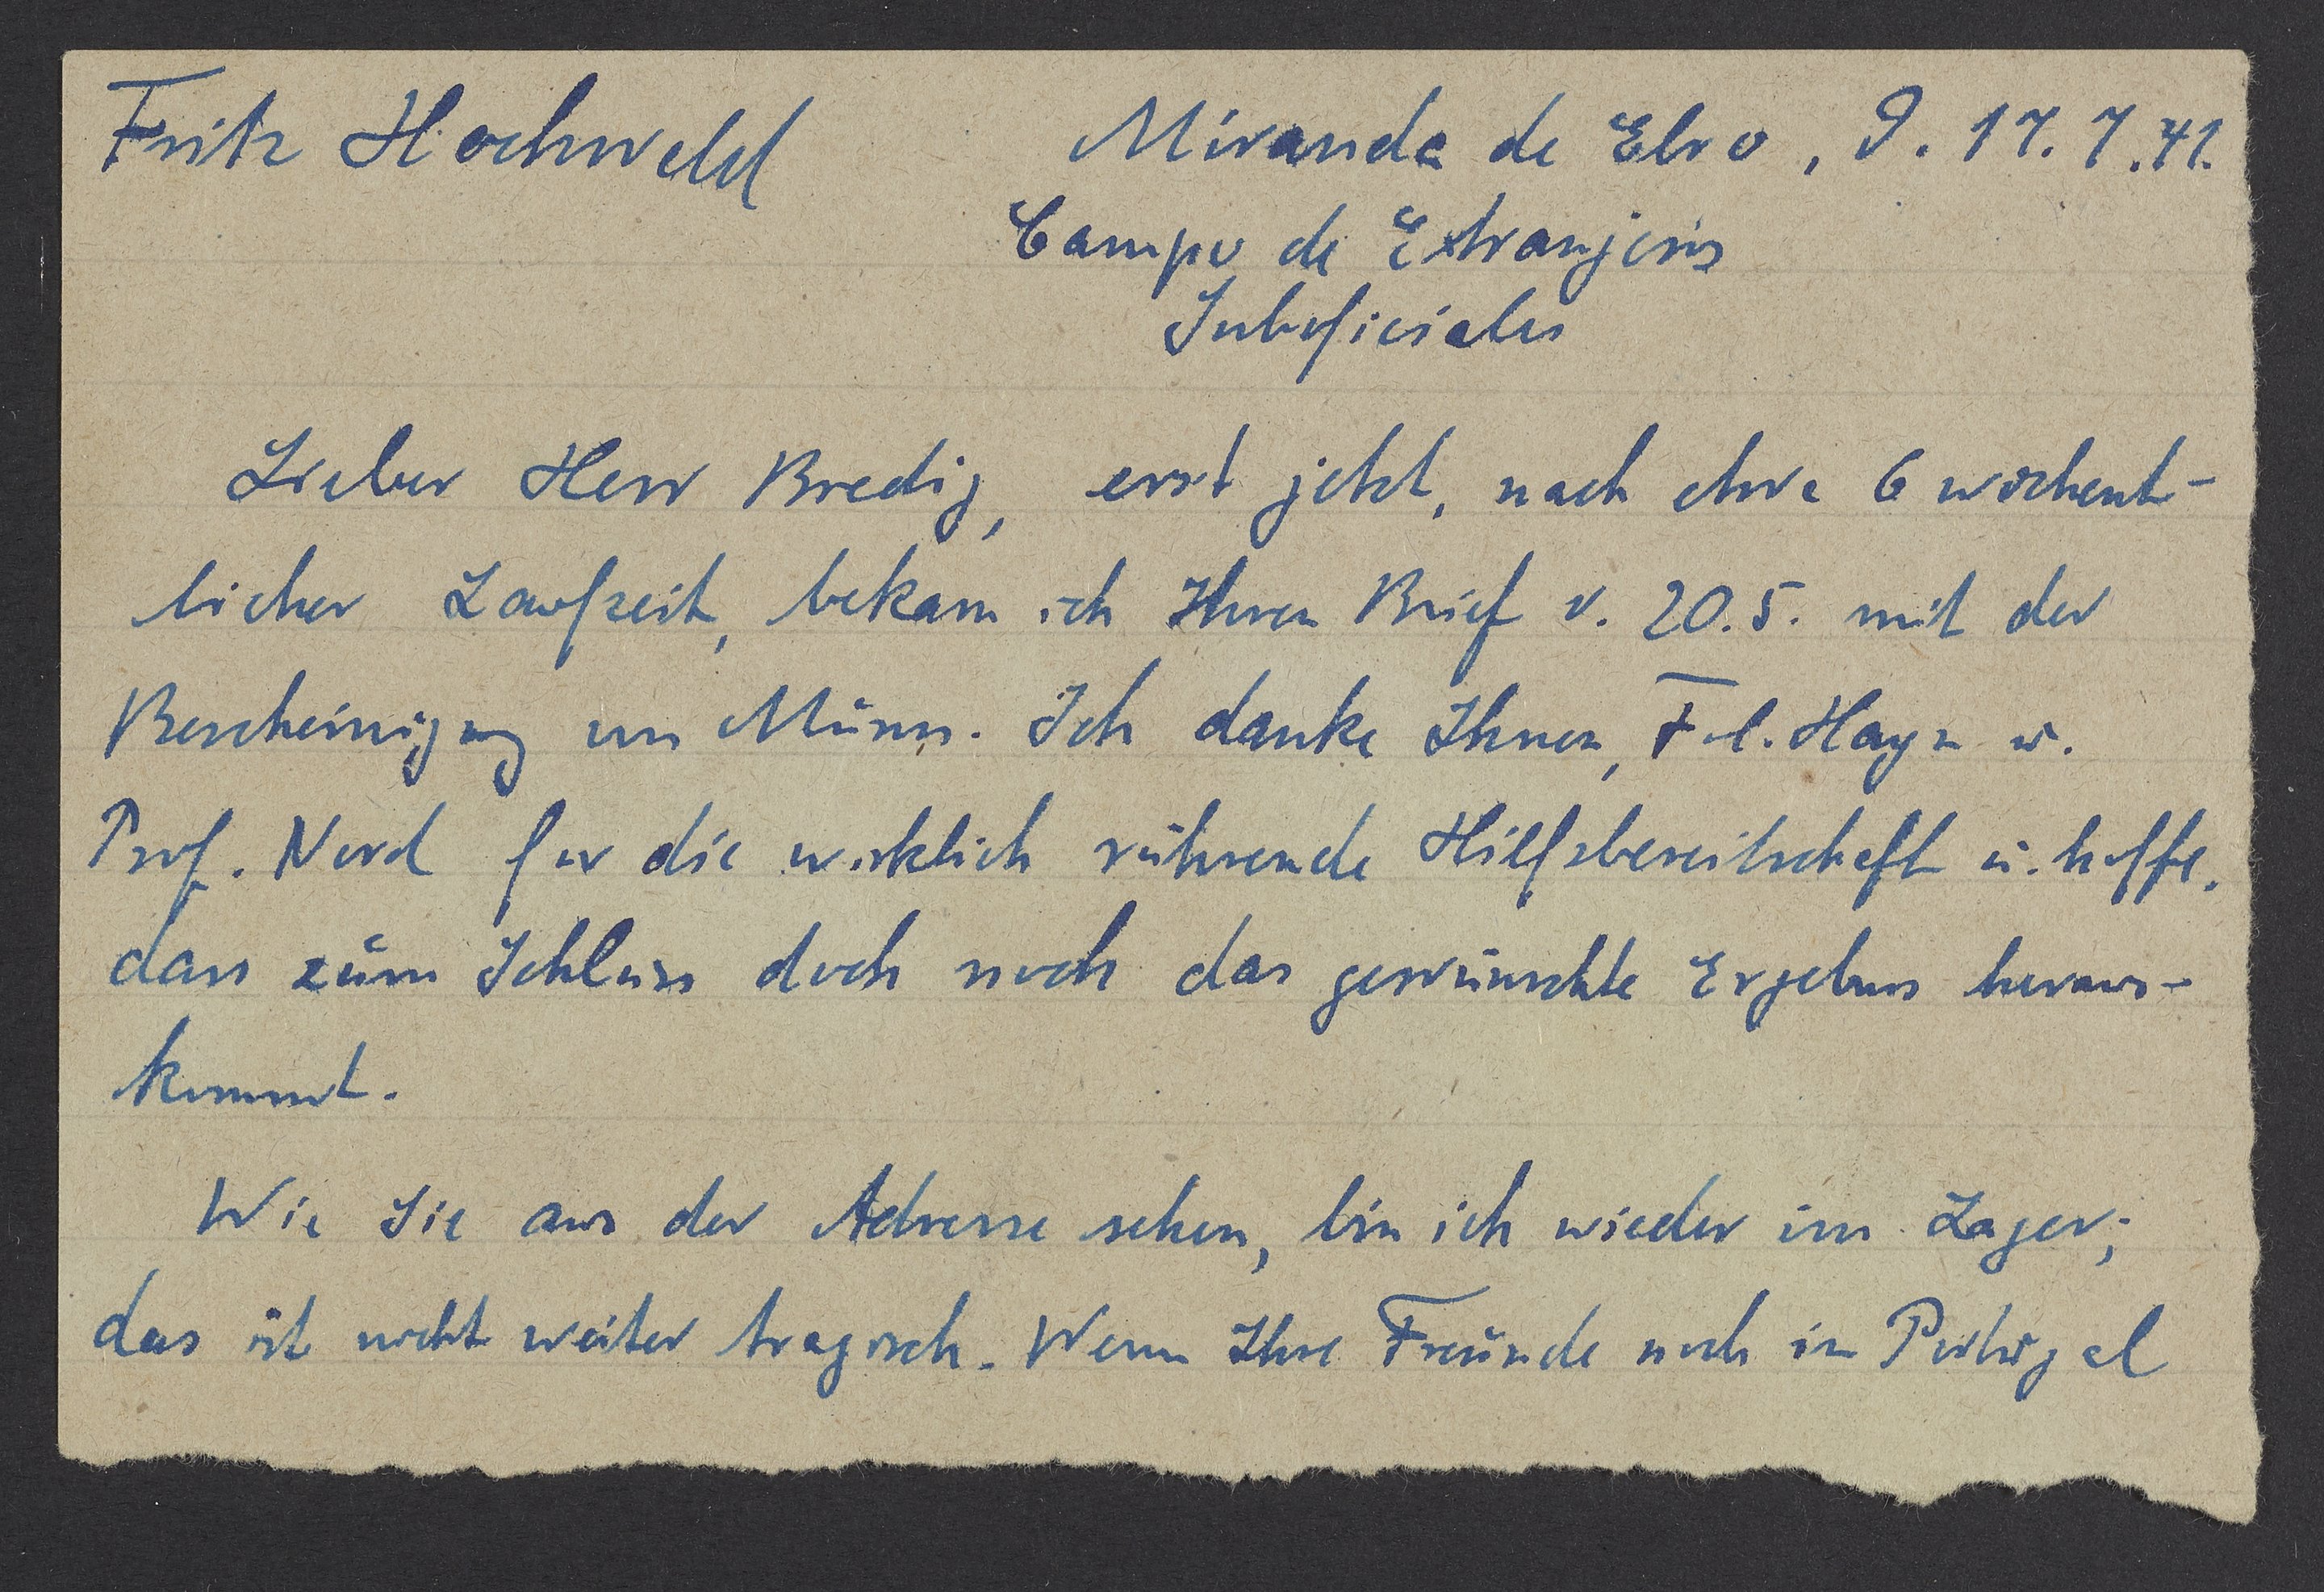 Fritz Hochwald
Miranda de Ebro, 9. 17. 7. 41.
Campo de Extranjeros
Suboficiales
Lieber Herr Bredig, erst jetzt, nach etwa 6 wöchent-
licher Laufzeit, bekam ich Ihren Brief v. 20.5. mit der
Bescheinigung Ich danke Ihnen, Frl. Hayn u.
Prof. Nord für die wirklich rührende Hilfsbereitschaft u. hoffe,
dass zum Schluss doch noch das gewünschte Ergebnis heraus-
kommt.
Wie Sie aus der Adresse sehen, bin ich wieder im Lager;
das ist nicht weiter tragisch. Wenn Ihre Freunde noch in Portugal